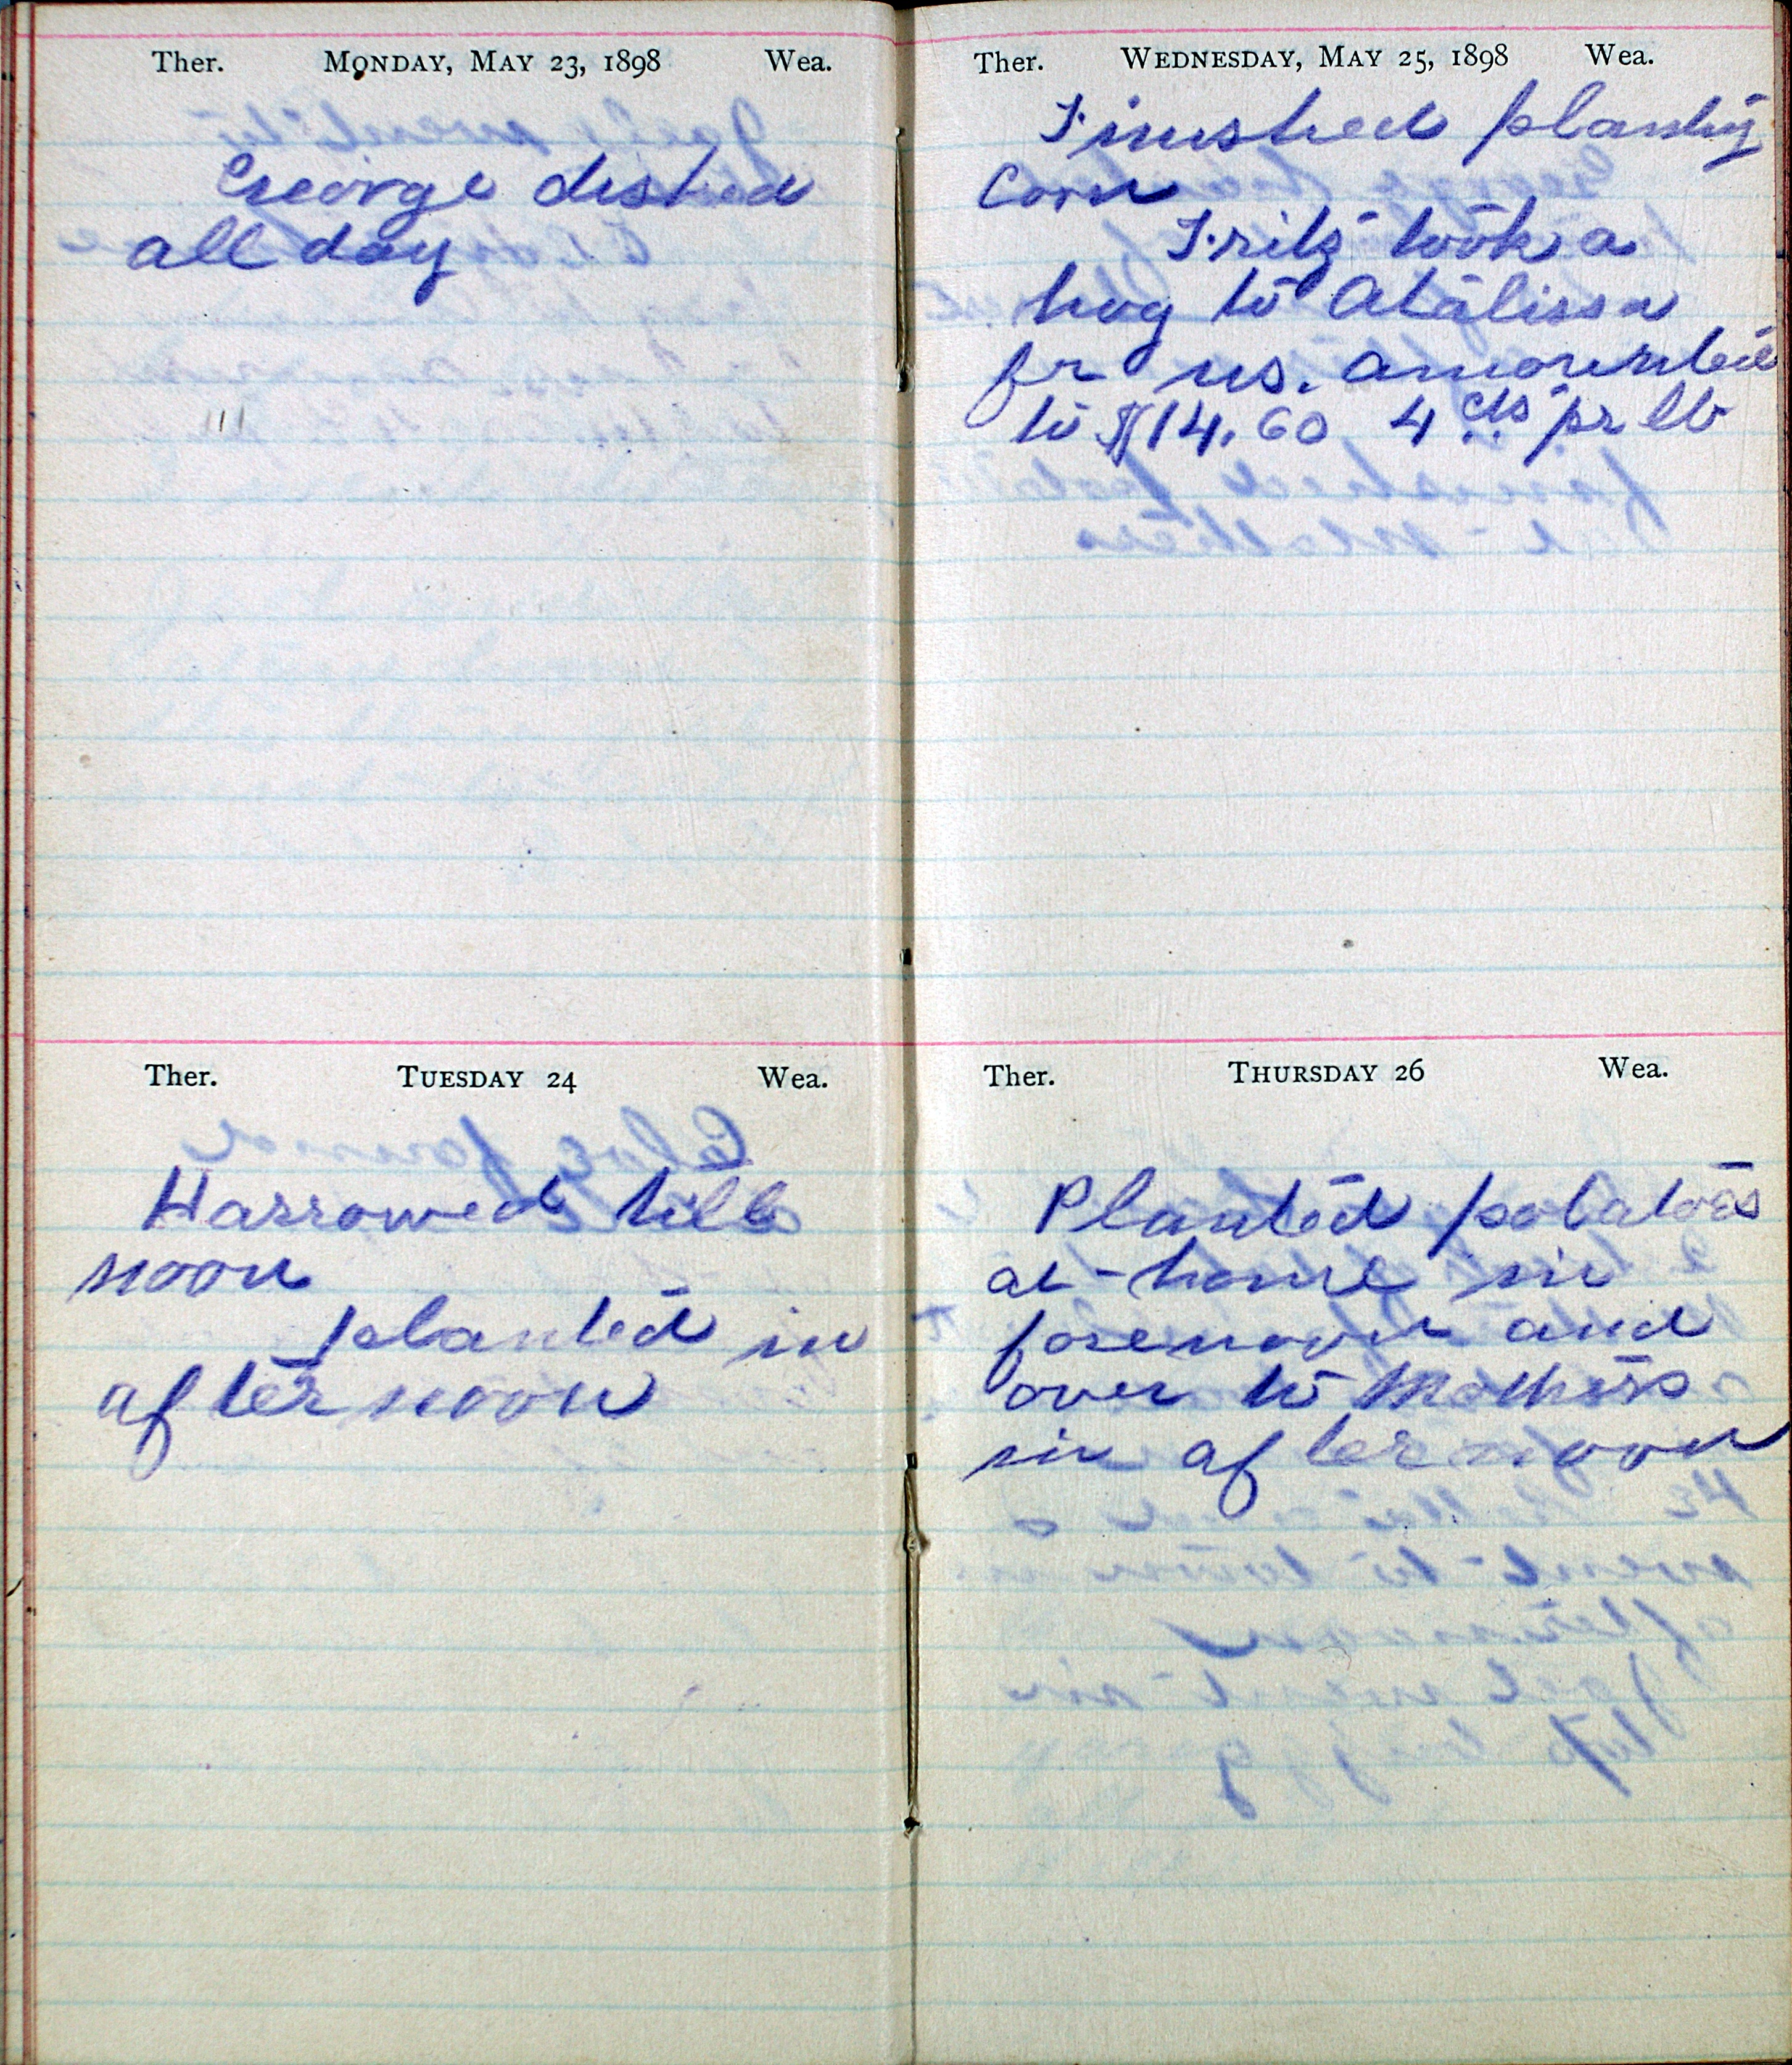 Ther. MONDAY, MAY 23, 1898 Wea.
George dished
all day
Ther. TUESDAY 24 Wea.
Harrowed till
noon
planted in
afternoon
Ther. WEDNESDAY, MAY 25, 1898 Wea.
Finished planting
Corn
Fritz took a
hog to Atalissa
for us. amounted
to $14.60 4 cts pr lb
Ther. THURSDAY 26 Wea.
Planted potatoes
at home in
forenoon and
over to Mothers
in afternoon